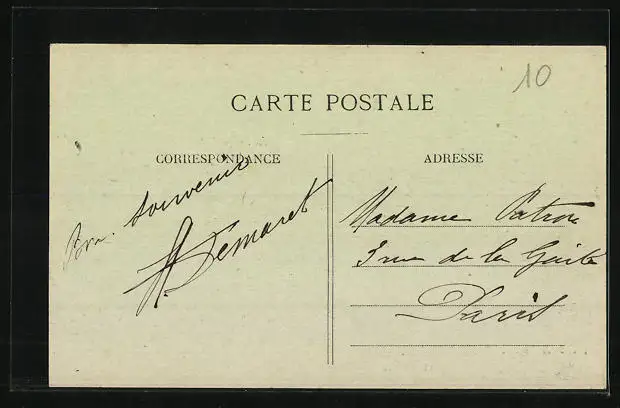 10
CARTE POSTALE
CORRESPONDANCE
Bon souvenir
A. Demaret
ADRESSE
Madame Patron
3 rue de la Gaité
Paris